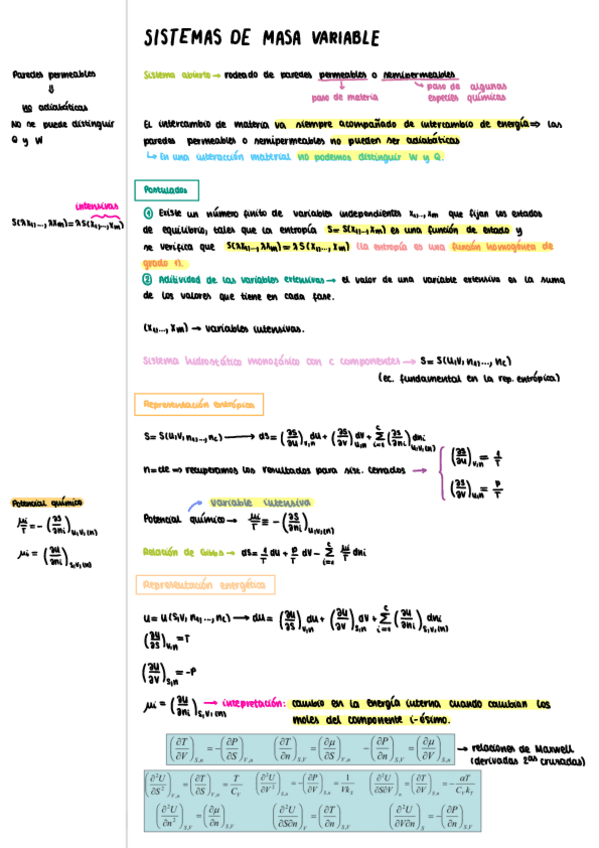 SISTEMAS DE MASA VARIABLE
Paredes permeables
⇓
no adiabáticas
No se puede distinguir
Q y W
Sistema abierto → rodeado de paredes permeables o semipermeables
paso de materia
paso de algunas
especies químicas
El intercambio de materia va siempre acompañado de intercambio de energía ⇒ las
paredes permeables o semipermeables no pueden ser adiabáticas
↳ En una interacción material no podemos distinguir W y Q.
Postulados
intensivas
S(λx₁,..., λxm) = λS(x₁,...,xm)
① Existe un número finito de variables independientes x₁,..., xm que fijan los estados
de equilibrio, tales que la entropía S = S(x₁,..., xm) es una función de estado y
se verifica que S(λx₁,..., λxm) = λ S(x₁,... xm) (la entropía es una función homogénea de
grado 1).
② Aditividad de las variables extensivas → el valor de una variable extensiva es la suma
de los valores que tiene en cada fase.
(x₁,..., xm) → variables intensivas.
Sistema hidrostático monofásico con c componentes → S = S(U,V, n₁,..., nc)
(ec. fundamental en la rep. entrópica)
Representación entrópica
S = S(U,V, n₁,..., nc) → dS = (∂S/∂U)V,n dU + (∂S/∂V)U,n dV + Σ i=1 c (∂S/∂ni)U,V,(n) dni
n = cte ⇒ recuperamos los resultados para sist. cerrados →
(∂S/∂U)V,n = 1/T
(∂S/∂V)U,n = P/T
Potencial químico
μi/T = - (∂S/∂ni)U,V,(n)
μi = (∂U/∂ni)S,V,(n)
variable intensiva
Potencial químico → μi/T ≡ - (∂S/∂ni)U,V,(n)
Relación de Gibbs → dS = 1/T dU + P/T dV - Σ i=1 c μi/T dni
Representación energética
U = U(S,V, n₁,..., nc) → dU = (∂U/∂S)V,n dU + (∂U/∂V)S,n dV + Σ i=1 c (∂U/∂ni)S,V,(n) dni
(∂U/∂S)V,n = T
(∂U/∂V)S,n = -P
μi = (∂U/∂ni)S,V,(n) → interpretación: cambio en la energía interna cuando cambian los
moles del componente i-ésimo.
(∂T/∂V)S,n = -(∂P/∂S)V,n (∂T/∂n)S,V = (∂μ/∂S)V,n -(∂P/∂n)S,V = (∂μ/∂V)S,n
→ relaciones de Maxwell
(derivadas 2ªs cruzadas)
(∂²U/∂S²)V,n = (∂T/∂S)V,n = T/CV (∂²U/∂V²)S,n = -(∂P/∂V)S,n = 1/VkS (∂²U/∂S∂V)n = (∂T/∂V)S,n = -αT/CVkT
(∂²U/∂n²)S,V = (∂μ/∂n)S,V (∂²U/∂S∂n)V = (∂T/∂n)S,V (∂²U/∂V∂n)S = -(∂P/∂n)S,V